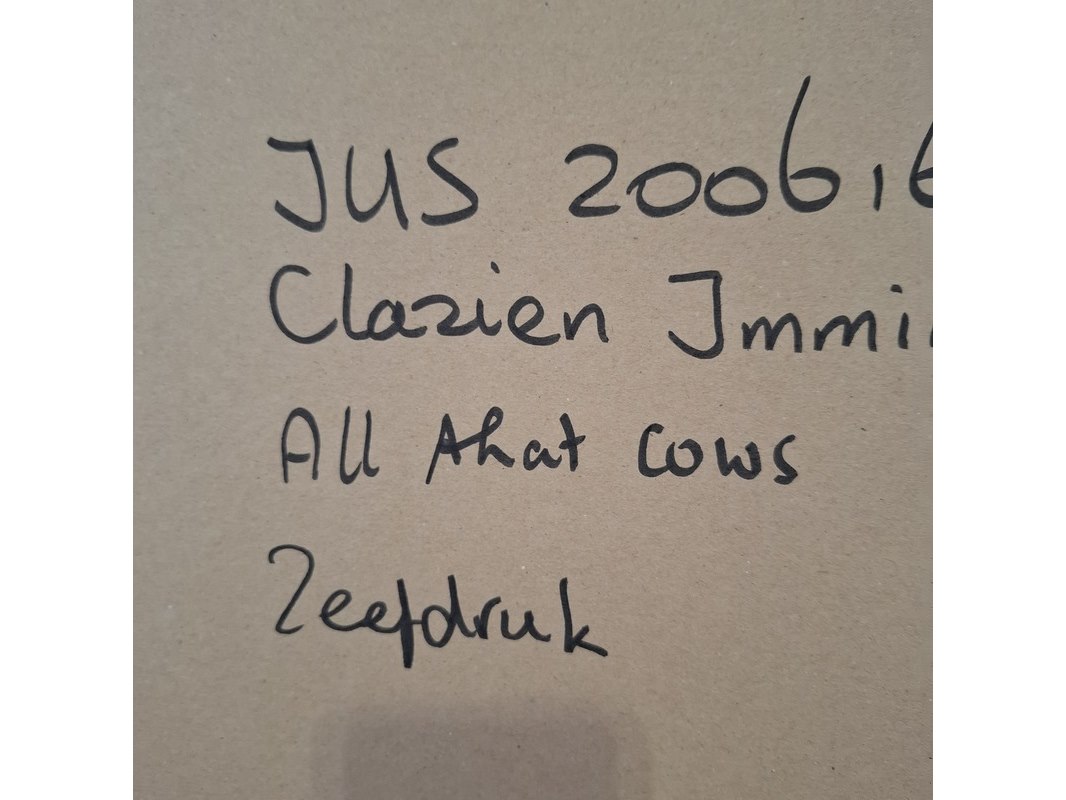 JUS 2006,6
Clazien Immi
All that cows
Zeefdruk